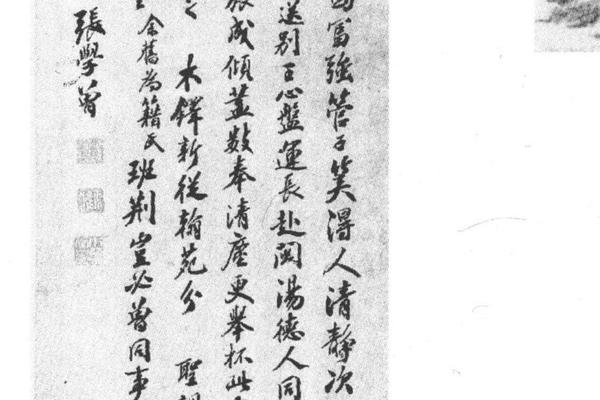 富強管子笑得人清靜次
送別王心盤運長赴閩湯德人同
成傾蓋數奉清塵更舉杯此
木鐸新從翰苑分 聖
余舊為籍民 班荊豈必曾同事
張學曾